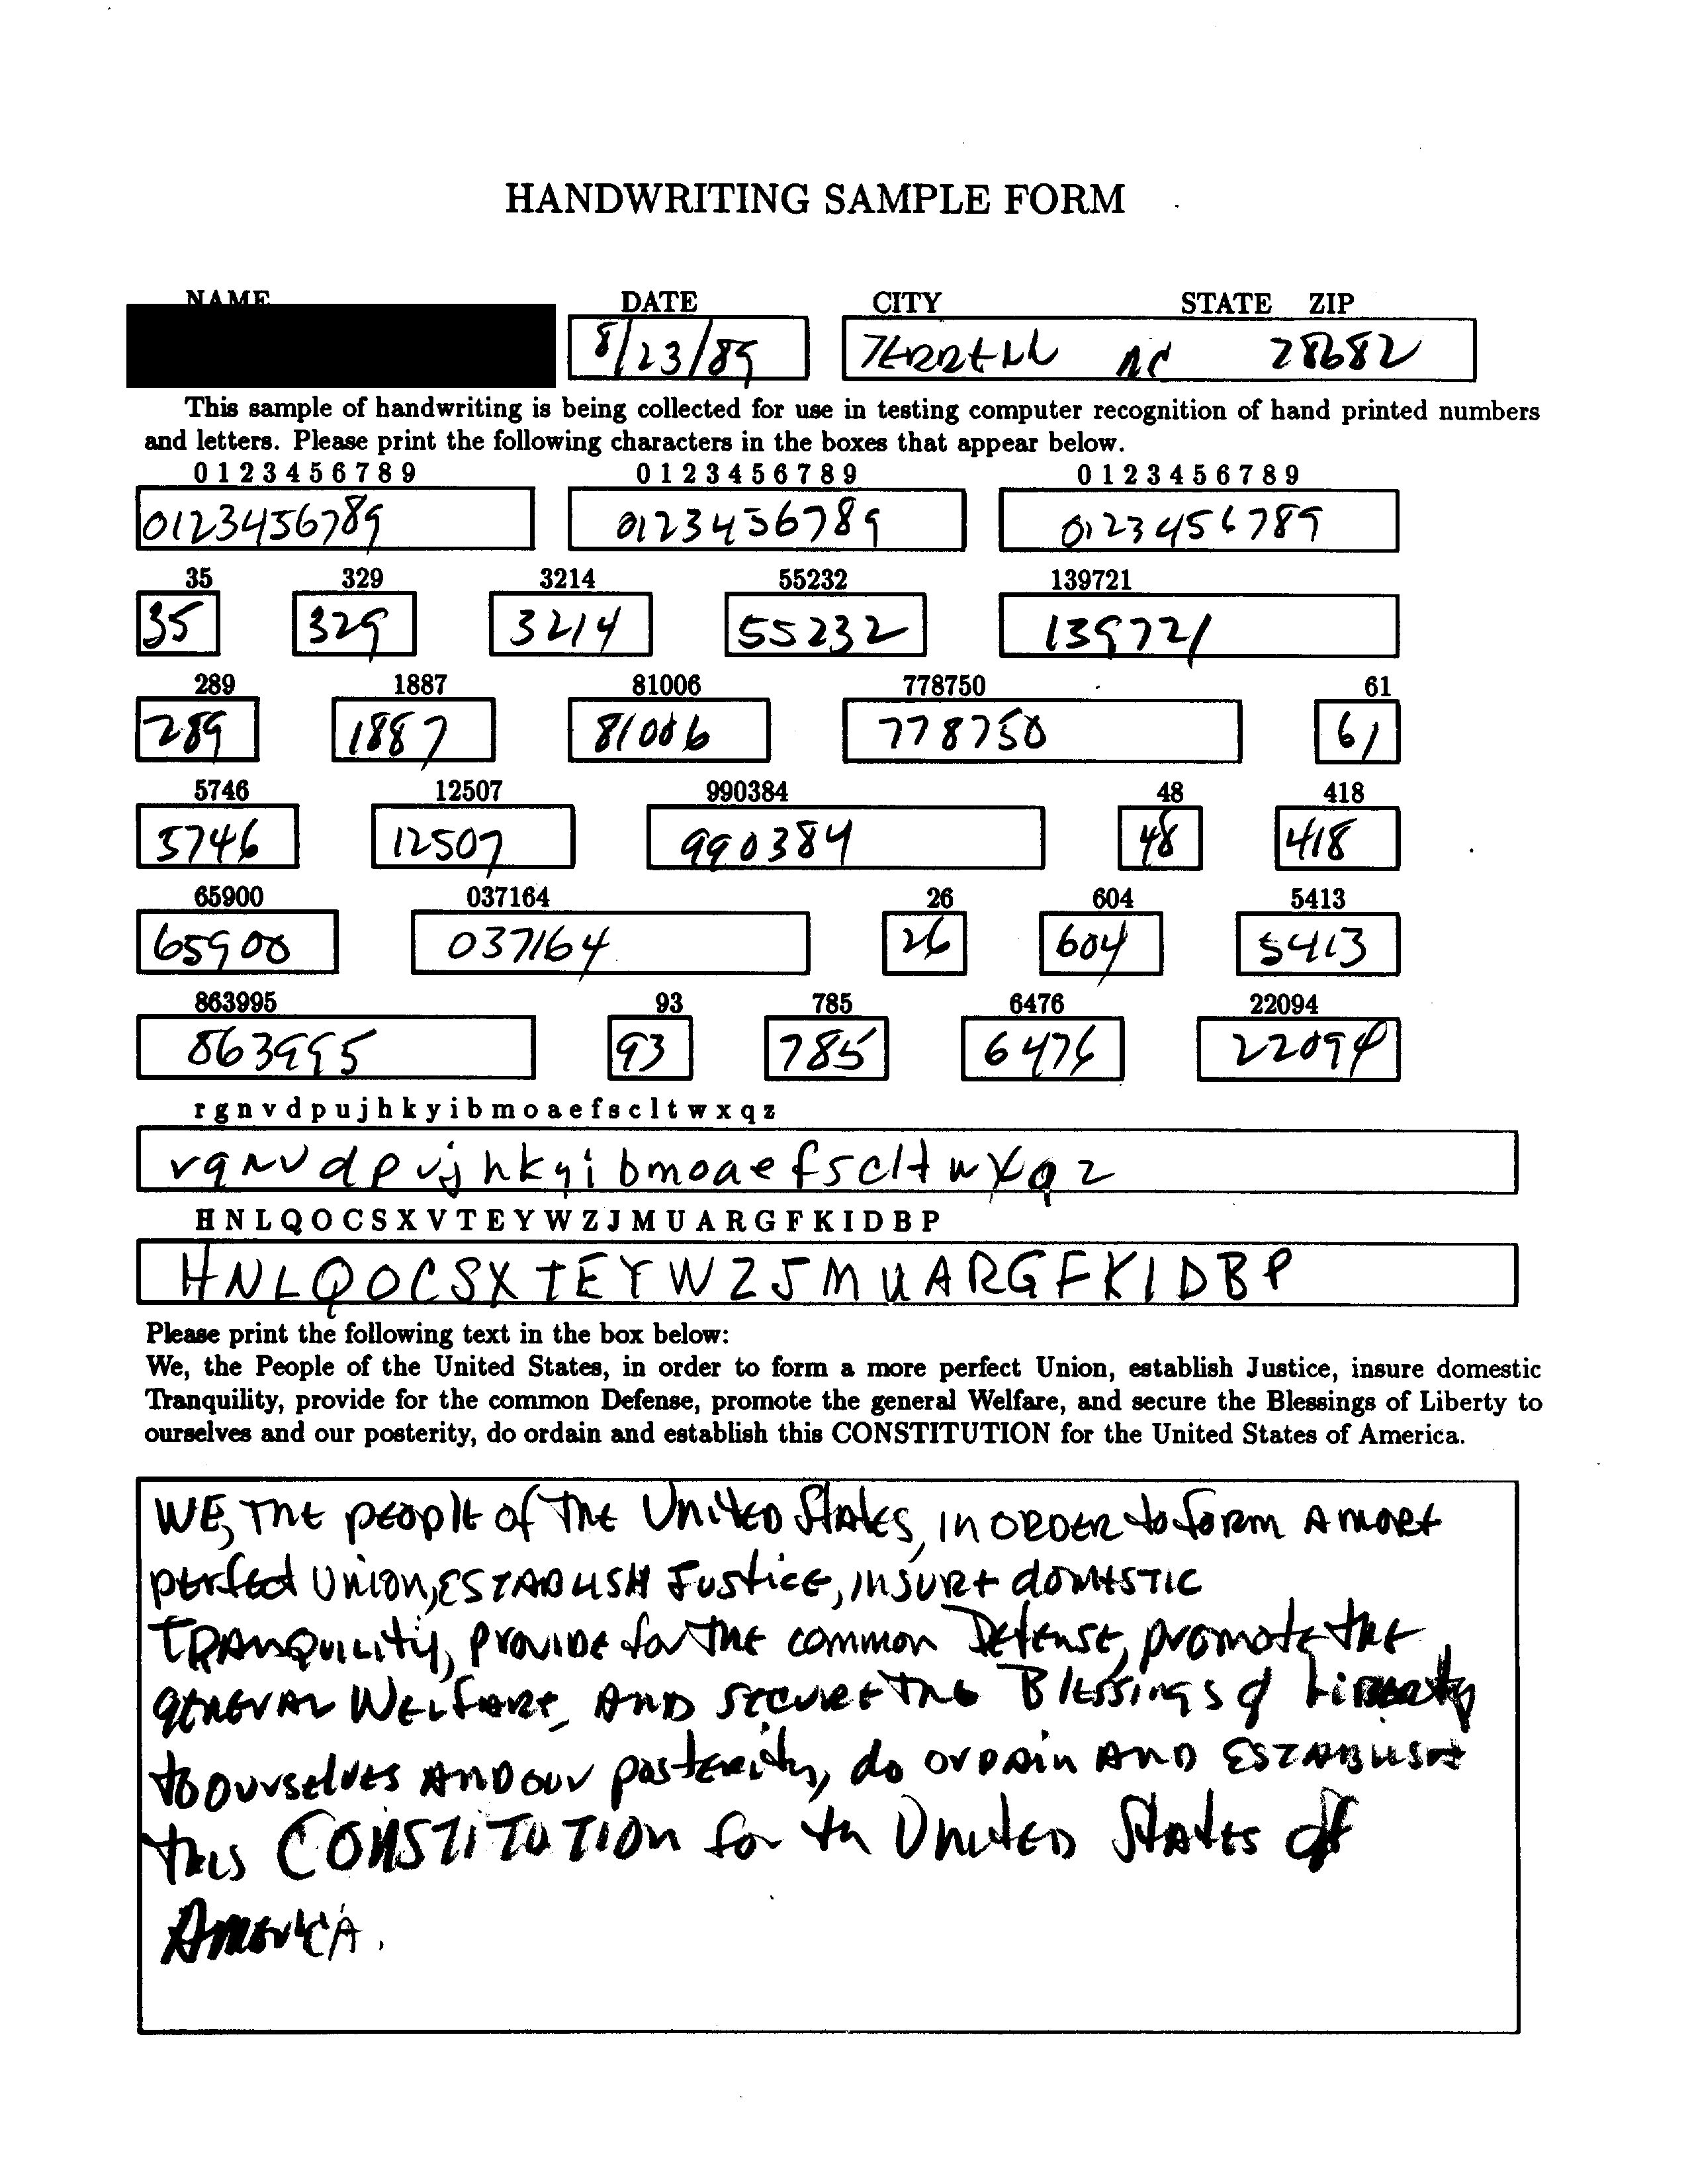 HANDWRITING SAMPLE FORM
NAME DATE CITY STATE ZIP
8/23/89 TERRELL NC 28682
This sample of handwriting is being collected for use in testing computer recognition of hand printed numbers
and letters. Please print the following characters in the boxes that appear below.
0 1 2 3 4 5 6 7 8 9 0 1 2 3 4 5 6 7 8 9 0 1 2 3 4 5 6 7 8 9
0123456789 0123456789 0123456789
35 329 3214 55232 139721
35 329 3214 55232 139721
289 1887 81006 778750 61
289 1887 81006 778750 61
5746 12507 990384 48 418
5746 12507 990384 48 418
65900 037164 26 604 5413
65900 037164 26 604 5413
863995 93 785 6476 22094
863995 93 785 6476 22094
r g n v d p u j h k y i b m o a e f s c l t w x q z
r g n v d p u j h k y i b m o a e f s c l t w x q z
H N L Q O C S X V T E Y W Z J M U A R G F K I D B P
H N L Q O C S X T E Y W Z J M U A R G F K I D B P
Please print the following text in the box below:
We, the People of the United States, in order to form a more perfect Union, establish Justice, insure domestic
Tranquility, provide for the common Defense, promote the general Welfare, and secure the Blessings of Liberty to
ourselves and our posterity, do ordain and establish this CONSTITUTION for the United States of America.
WE, THE peoplE of THE UniTED StAtes, in ORDER to form A morE
perfect Union, ESTABLISH JusticE, insurE domESTIC
TRANQUILity, provIDE for THE common DefensE, promotE the
gENErAL WELfarE, AND SEcurE THE BlEssings of Liberty
to ourselvEs AND our postErity, do orDAin AND ESTABLISH
this CONSTITUTION for th UnitED StAtES of
AmEricA.